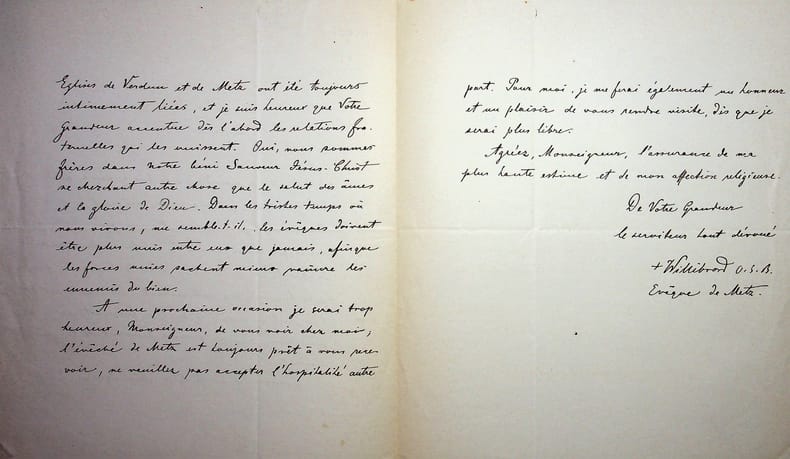 Eglises de Verdun et de Metz ont été toujours
intimement liées, et je suis heureux que Votre
Grandeur accentue dès l'abord les relations fra-
ternelles qui les unissent. Oui, nous sommes
frères dans notre béni Sauveur Jésus-Christ
ne cherchant autre chose que le salut des âmes
et la gloire de Dieu. Dans les tristes temps où
nous vivons, me semble-t-il, les évêques doivent
être plus unis entre eux que jamais, afin que
les forces unies sachent mieux vaincre les
ennemis du bien.
A une prochaine occasion je serai trop
heureux, Monseigneur, de vous voir chez moi;
l'évêché de Metz est toujours prêt à vous rece-
voir, ne veuillez pas accepter l'hospitalité autre
part. Pour moi, je me ferai également un honneur
et un plaisir de vous rendre visite, dès que je
serai plus libre.
Agréez, Monseigneur, l'assurance de ma
plus haute estime et de mon affection religieuse.
De Votre Grandeur
le serviteur tout dévoué
+ Willibrord O.S.B.
Evêque de Metz.